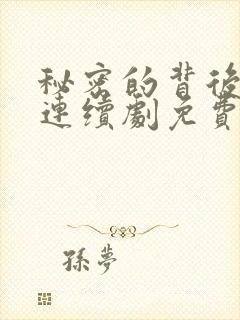 秘密的背後
連續劇免費
孫夢